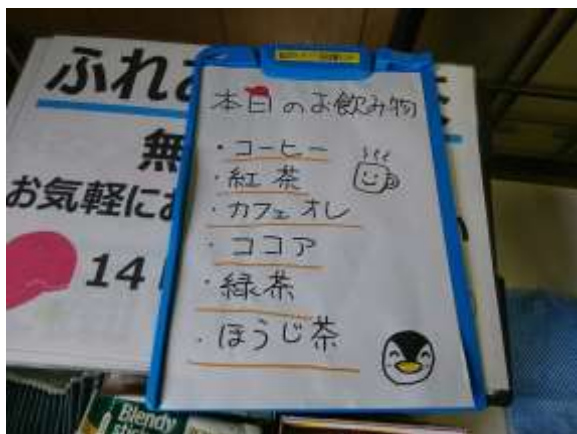 ふれあ
無
お気軽にお
14
本日のお飲み物
・コーヒー
・紅茶
・カフェオレ
・ココア
・緑茶
・ほうじ茶
Blendy
stick